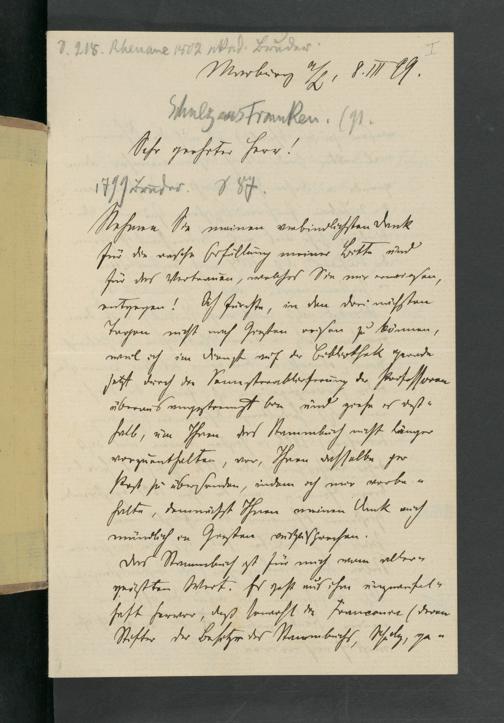 S. 215. Rhenane 1802 Bruder. I
Marburg a/L, 8. III 99.
Schulz aus Franken. (91.
Sehr geehrter Herr!
1799 Bruder. S 87.
Nehmen Sie meinen verbindlichsten Dank
für die rasche Erfüllung meiner Bitte und
für das Vertrauen, welches Sie mir erweisen,
entgegen! Ich fürchte, in den drei nächsten
Tagen nicht nach Gießen reisen zu können,
weil ich im Dienst auf der Bibliothek gerade
jetzt durch die Semesterablieferung der Professoren
überaus angestrengt bin und ziehe es deß-
halb, um Ihnen das Stammbuch nicht länger
vorzuenthalten, vor, Ihnen dasselbe per
Post zu übersenden, indem ich mir vorbe-
halte, demnächst Ihnen meinen Dank auch
mündlich in Gießen auszusprechen.
Das Stammbuch ist für mich vom aller-
größten Wert. Es geht aus ihm unzweifel-
haft hervor, daß sowohl die Franconia (deren
Stifter der Besitzer des Stammbuchs, Schulz, ge-